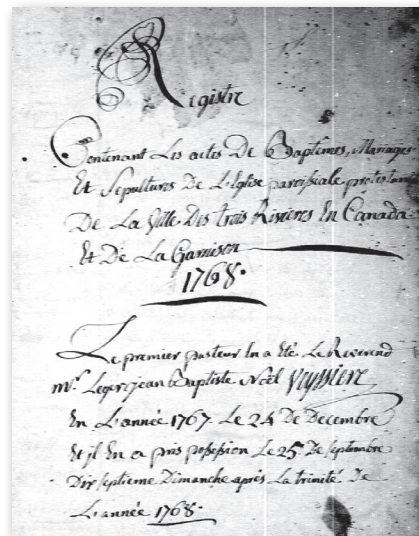 Registre
Contenant Les actes De Baptêmes, Mariages
Et Sepultures De L'Eglise paroissiale protestante
De La Ville Des trois Rivieres En Canada
Et De La Garnison
1768.
Le premier pasteur En a été Le Reverend
Mr. Leger Jean Baptiste Noël Veyssiere
En L'année 1767. Le 24 De Decembre
Et il En a pris possession Le 25 De septembre
Dix septieme Dimanche après La trinité De
L'année 1768.